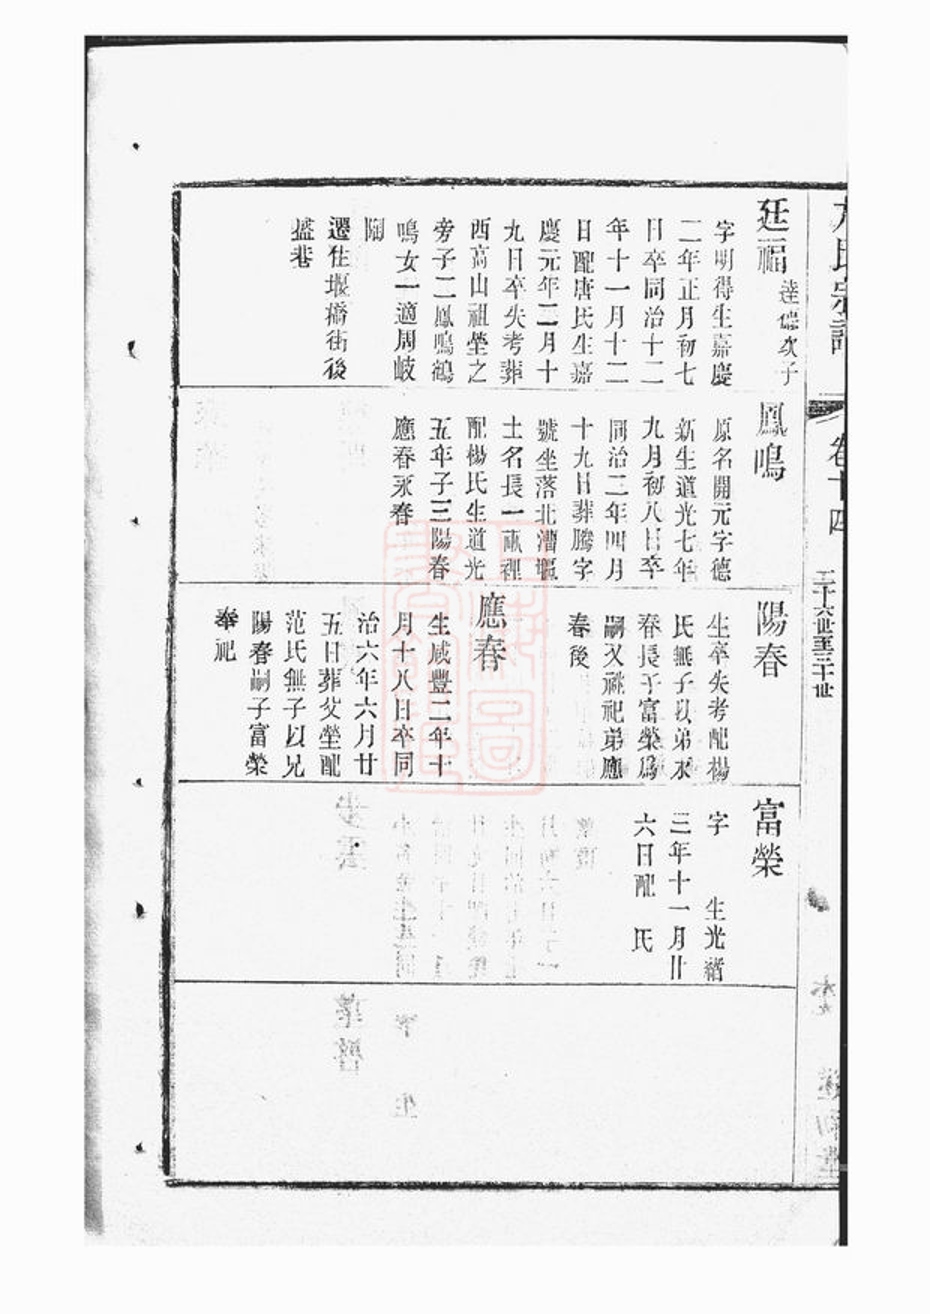 氏宗譜
卷十四
二十六世至三十世
廷福
達儻次子
字明得生嘉慶
二年正月初七
日卒同治十二
年十一月十二
日配唐氏生嘉
慶元年二月十
九日卒失考葬
西高山祖塋之
旁子二鳳鳴鶴
鳴女一適周岐
陶
遷住堰橋街後
盛巷
鳳鳴
原名開元字德
新生道光七年
九月初八日卒
同治二年四月
十九日葬騰字
號坐落北漕
土名長一畝裡
配楊氏生道光
五年子三陽春
應春永春
陽春
生卒失考配楊
氏無子以弟永
春長子富榮爲
嗣又祧祀弟應
春後
應春
生咸豐二年十
月十八日卒同
治六年六月廿
五日葬父塋配
范氏無子以兄
陽春嗣子富榮
奉祀
富榮
字　生光緒
三年十一月廿
六日配　氏